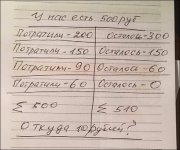 У нас есть 500 руб
Потратили-200 Осталось-300
Потратили-150 Осталось-150
Потратили-90 Осталось-60
Потратили-60 Осталось-0
Σ 500 Σ 510
Откуда 10 рублей?